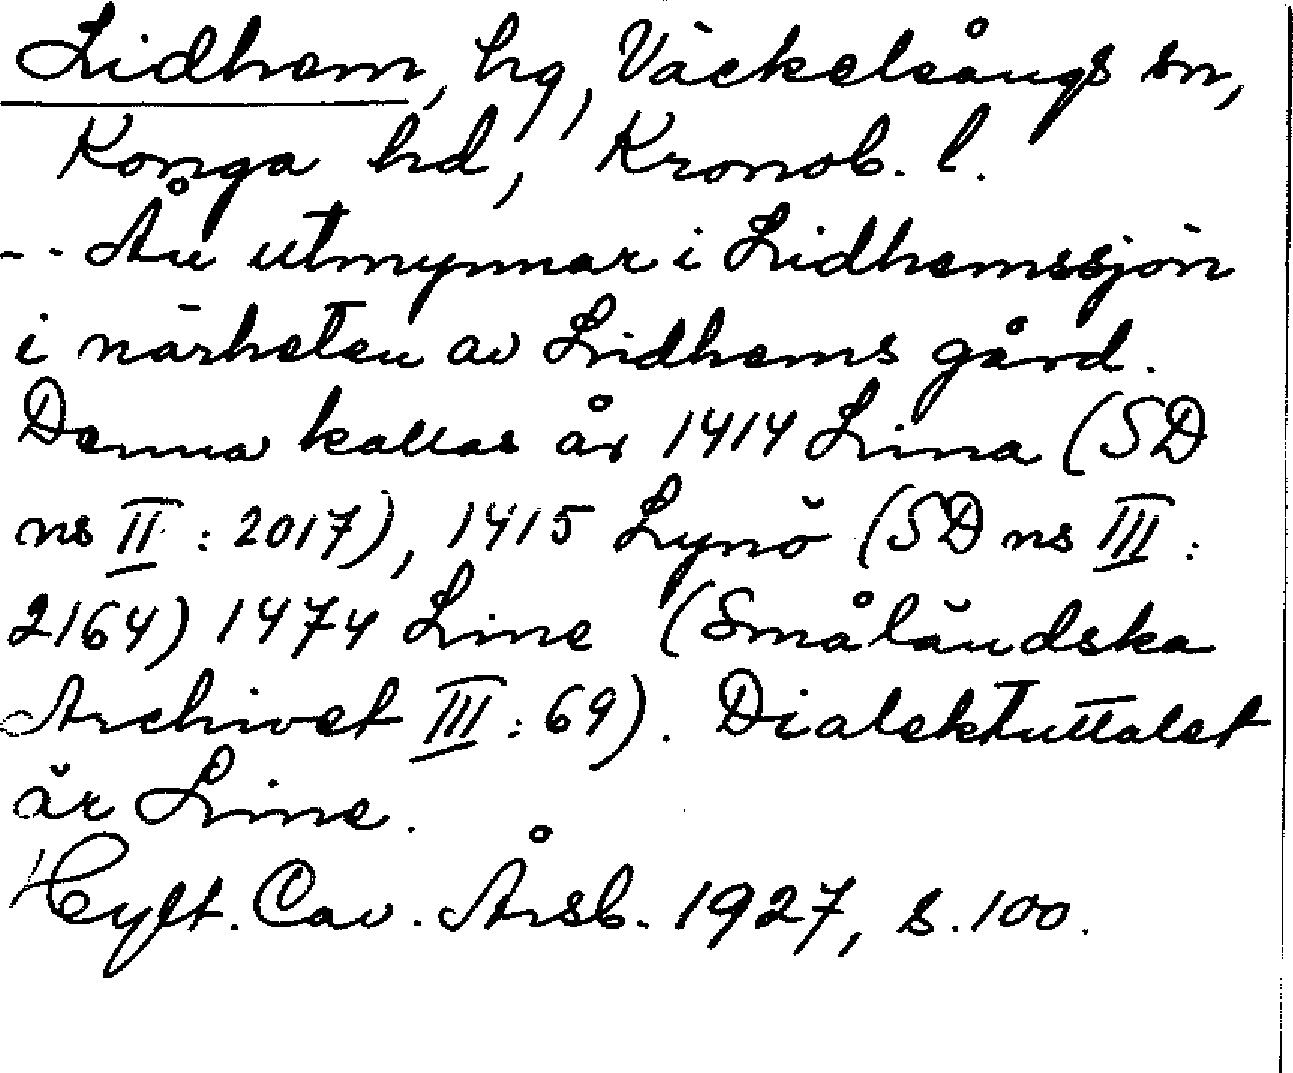 Lidhem, hg, Väckelsångs sn,
Konga hd, Kronob. l.
-- Ån utmynnar i Lidhemssjön
i närheten av Lidhems gård.
Denna kallas år 1414 Lina (SD
ns II : 2017), 1415 Lynö (SD ns III :
2164) 1474 Line (Småländska
Archivet III : 69). Dialektuttalet
är Line.
Hylt. Cav. Årsb. 1927, s. 100.